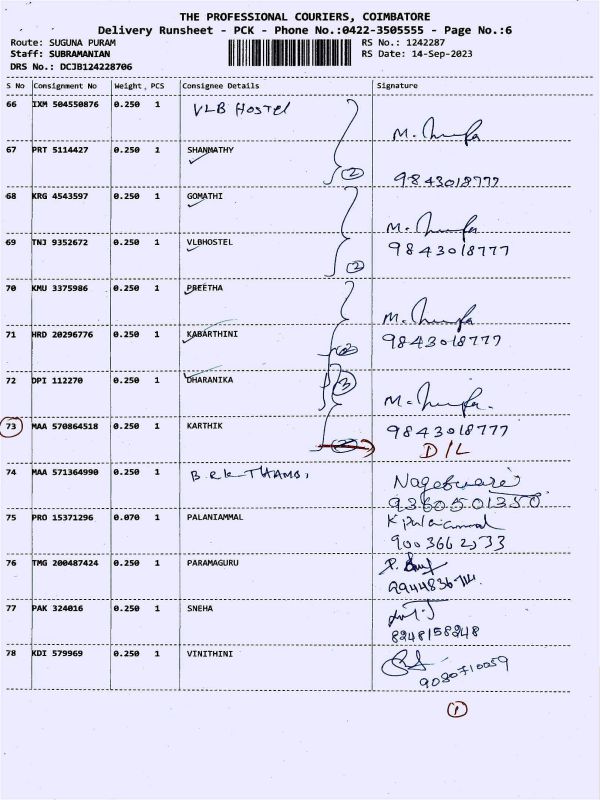 THE PROFESSIONAL COURIERS, COIMBATORE
Delivery Runsheet - PCK - Phone No.:0422-3505555 - Page No.:6
Route: SUGUNA PURAM RS No.: 1242287
Staff: SUBRAMANIAN RS Date: 14-Sep-2023
DRS No.: DCJB124228706
S No Consignment No Weight, PCS Consignee Details Signature
66 IXM 504550876 0.250 1 VLB HOSTEL
67 PRT 5114427 0.250 1 SHANMATHY
2 9843018777
68 KRG 4543597 0.250 1 GOMATHI
69 TNJ 9352672 0.250 1 VLBHOSTEL 9843018777
2
70 KMU 3375986 0.250 1 PREETHA
71 HRD 20296776 0.250 1 KABARTHINI 9843018777
72 DPI 112270 0.250 1 DHARANIKA 3
73 MAA 570864518 0.250 1 KARTHIK 9843018777
D/L
74 MAA 571364990 0.250 1 B.R.K THAMBI, Nageswari
9360501350
75 PRO 15371296 0.070 1 PALANIAMMAL K palaiammal
9003662533
76 TMG 200487424 0.250 1 PARAMAGURU
77 PAK 324016 0.250 1 SNEHA
8248158248
78 KDI 579969 0.250 1 VINITHINI
9080710059
1